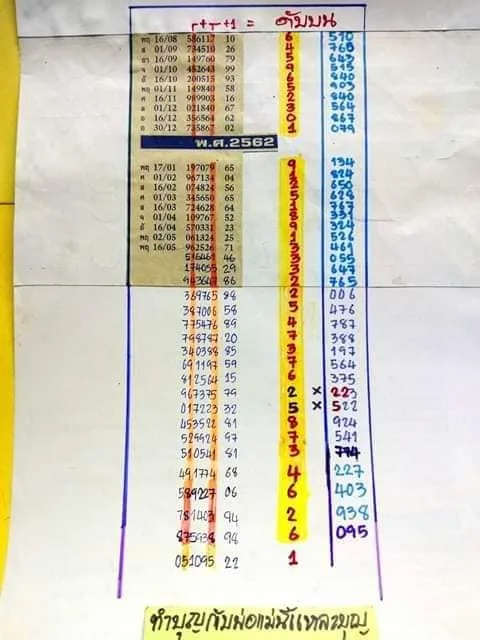 r+r+1 = ดับบน
พฤ 16/08 586117 10 6 510
ส 01/09 734510 26 4 765
อา 16/09 149760 79 5 643
จ 01/10 452643 99 9 515
อั 16/10 200515 93 6 840
พฤ 01/11 149840 58 5 903
ศ 16/11 989903 16 2 840
ส 01/12 021840 67 3 564
อ 16/12 356564 62 0 867
อ 30/12 735867 02 1 079
พ.ศ.2562
พฤ 17/01 197079 65 9 134
ศ 01/02 967134 04 1 824
ส 16/02 074824 56 2 650
ศ 01/03 345650 65 5 628
ส 16/03 724628 64 1 767
จ 01/04 109767 52 8 331
อั 16/04 570331 23 9 324
พฤ 02/05 061324 25 1 526
พฤ 16/05 962526 71 3 461
516461 46 3 055
174055 29 3 647
943647 86 2 765
369765 88 2 006
387006 58 5 476
775476 89 4 787
798787 20 7 388
340388 85 3 197
691197 59 7 564
812564 15 6 375
967375 79 2 × 223
017223 32 5 × 522
453522 81 8 924
529924 97 7 541
510541 81 3 774
491774 68 4 227
589227 06 6 403
781403 94 2 938
875938 98 6 095
051095 22 1
ทำบุญกับพ่อแม่นี้แหละบุญ